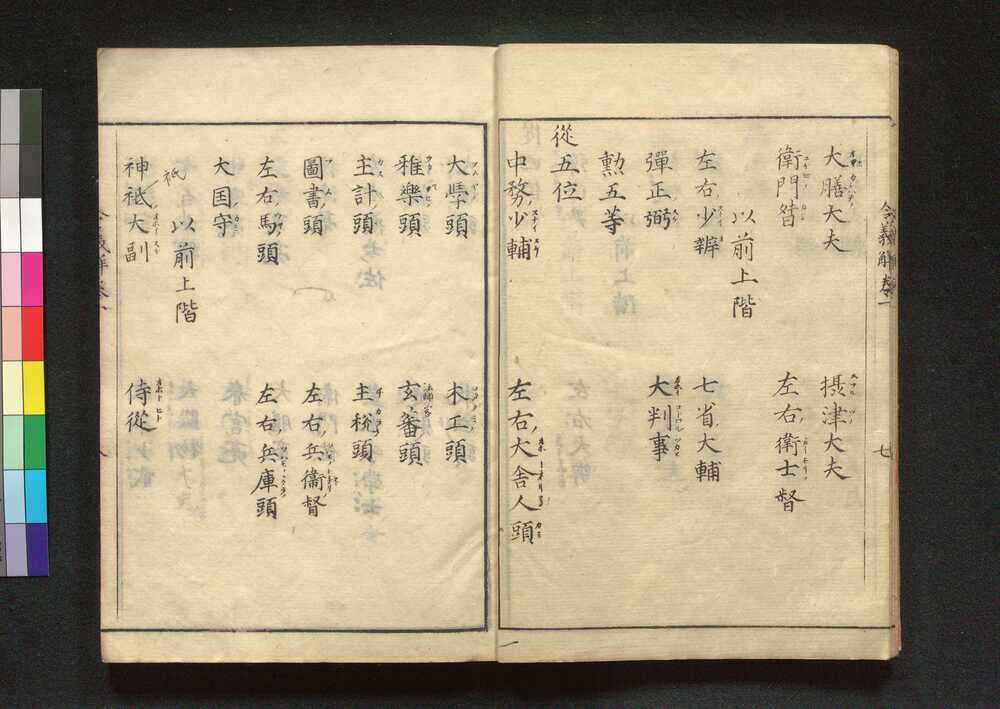 大膳大夫　摂津大夫
衛門督　左右衛士督
以前上階
左右少辨　七省大輔
彈正弼　大判事
勲五等
從五位
中務少輔　左右大舎人頭
大學頭　木工頭
雅樂頭　玄蕃頭
主計頭　主税頭
圖書頭　左右兵衞督
左右馬頭　左右兵庫頭
大国守
以前上階
祇
神祇大副　侍從
令義解卷一
七